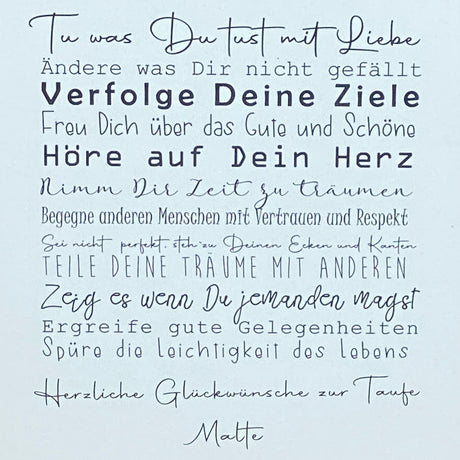 Tu was Du tust mit Liebe
Ändere was Dir nicht gefällt
Verfolge Deine Ziele
Freu Dich über das Gute und Schöne
Höre auf Dein Herz
Nimm Dir Zeit zu träumen
Begegne anderen Menschen mit Vertrauen und Respekt
Sei nicht perfekt, steh zu Deinen Ecken und Kanten
TEILE DEINE TRÄUME MIT ANDEREN
Zeig es wenn Du jemanden magst
Ergreife gute Gelegenheiten
Spüre die Leichtigkeit des Lebens
Herzliche Glückwünsche zur Taufe
Malte